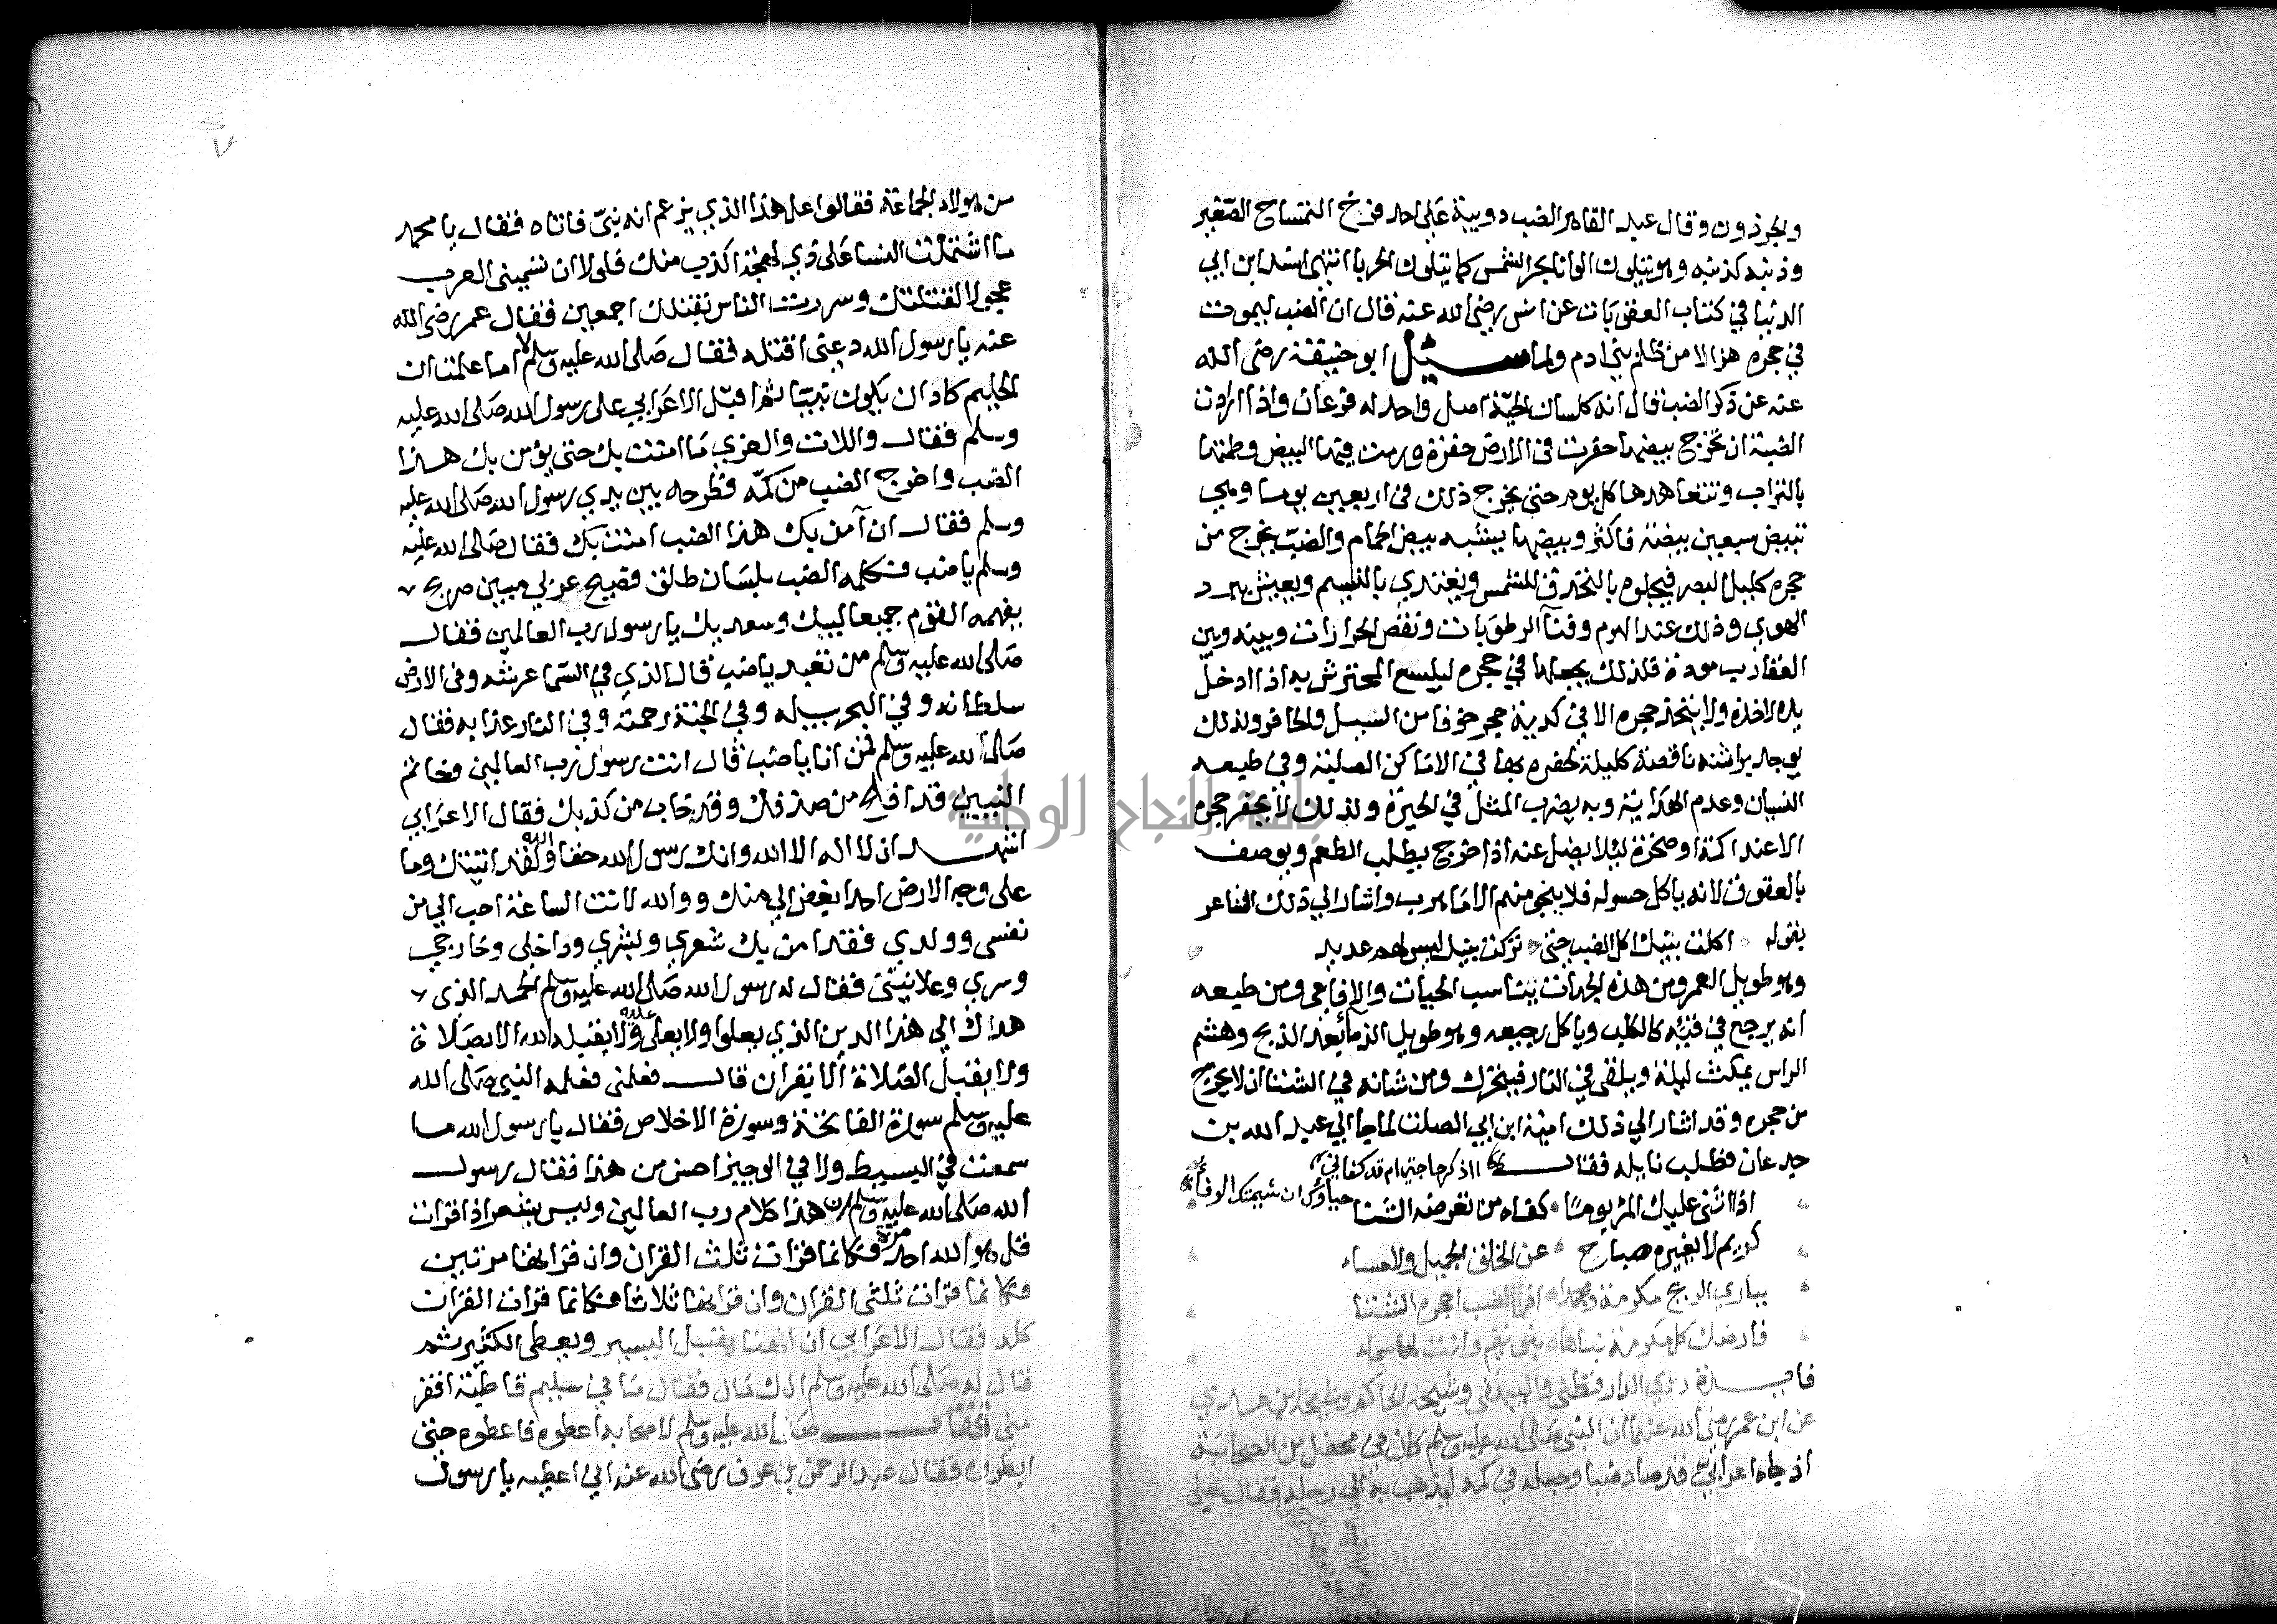 والحرذون وقال عبد القاهر الضب دويبة على احد فرخ التمساح الصغير
وذنبه كذنبه وهو يتلون الوانا بحر الشمس كما يتلون الحربا انتهى اسند ابن ابي
الدنيا في كتاب العقوبات عن انس رضي الله عنه قال ان الضب ليموت
في حجره هزالا من ظلم بني ادم ولما سئل ابو حنيفة رضي الله
عنه عن ذكر الضب قال انه كلسان الحية اصل واحد له فرعان واذا ارادت
الضبة ان تخرج بيضها حفرت في الارض حفرة ورمت فيها البيض وطمتها
بالتراب وتتعاهدها كل يوم حتى يخرج ذلك في اربعين يوما وهي
تبيض سبعين بيضة فاكثر وبيضها يشبه بيض الحمام والضب يخرج من
حجره كليل البصر فيجلوه بالتحدق للشمس ويغتدي بالنسيم ويعيش ببرد
الهوي وذلك عند الهرم وفنآ الرطوبات ونقص الحرارات وبينه وبين
العقارب مودة فلذلك يجعلها في حجره ليلسع المحترش به اذا ادخل
يده لاخذه ولا يتخذ حجره الا في كدية حجر خوفا من السيل والحافر ولذلك
يوجد براثنه ناقصة كليلة لحفره بها في الاماكن الصلبة وفي طبعه
النسيان وعدم الهداية وبه يضرب المثل في الحيرة ولذلك لا يحفر حجره
الا عند اكمة او صخرة ليلا يضل عنه اذا خرج يطلب الطعم ويوصف
بالعقوق لانه ياكل حسوله فلا ينجو منهم الا ما هرب واشار الي ذلك الشاعر
بقوله اكلت بنيك اكل الضب حتى تركت بنيك ليس لهم عديد
وهو طويل العمر ومن هذه الجهات يناسب الحيات والافاعي ومن طبعه
انه يرجع في قيئه كالكلب وياكل رجيعه وهو طويل الذمآ بعد الذبح وهشم
الراس يمكث ليلة ويلقى في النار فيتحرك ومن شانه في الشتا ان لا يخرج
من حجره وقد اشار الي ذلك امية ابن ابي الصلت لما جا الي عبد الله بن
جدعان فطلب نايله فقال ااذكر حاجتي ام قد كفاني
حياؤك ان شيمتك الوفاء
اذا اثنى عليك المرؤ يوما كفاه من تعرضه الشتا
كريم لا يغيره صباح عن الخلق الجميل ولا مساء
يباري الريح مكرمة ومجدا اذا ما الضب احجره الشتا
فارضك كل مكرمة بناها بني تيم وانت لها سماء
فايدة روي الدارقطني والبيهقي وشيخه الحاكم وشيخه ابن عدي
عن ابن عمر رضي الله عنهما ان النبي صلى الله عليه وسلم كان في محفل من الصحابة
اذ جاه اعرابي قد صاد ضبا وجعله في كمه ليذهب به الي رحله فقال على
من هولاء
من هولاء الجماعة فقالوا على هذا الذي يزعم انه نبي فاتاه فقال يا محمد
ما اشتملت النسا على ذي لهجة اكذب منك فلولا ان تسميني العرب
عجولا لقتلتك وسررت الناس بقتلك اجمعين فقال عمر رضي الله
عنه يا رسول الله دعني اقتله فقال صلى الله عليه وسلم لا اما علمت ان
الحليم كاد ان يكون نبيا ثم اقبل الاعرابي على رسول الله صلى الله عليه
وسلم فقال واللات والعزي ما امنت بك حتى يؤمن بك هذا
الضب واخرج الضب من كمه فطرحه بين يدي رسول الله صلى الله عليه
وسلم فقال ان آمن بك هذا الضب امنت بك فقال صلى الله عليه
وسلم يا ضب فكلمه الضب بلسان طلق فصيح عربي مبين صريح
يفهمه القوم جميعا لبيك وسعديك يا رسول رب العالمين فقال
صلى الله عليه وسلم من تعبد يا ضب قال الذي في السما عرشه وفي الارض
سلطانه وفي البحر سبيله وفي الجنة رحمته وفي النار عذابه فقال
صلى الله عليه وسلم فمن انا يا ضب قال انت رسول رب العالمين وخاتم
النبيين قد افلح من صدقك وقد خاب من كذبك فقال الاعرابي
اشهد ان لا اله الا الله وانك رسول الله حقا والله لقد اتيتك وما
على وجه الارض احدا ابغض الي منك ووالله لانت الساعة احب الي من
نفسي وولدي فقد امن بك شعري وبشري وداخلي وخارجي
وسري وعلانيتي فقال له رسول الله صلى الله عليه وسلم الحمد الذى
هداك الي هذا الدين الذي يعلوا ولا يعلى عليه ولا يقبله الله الا بصلاة
ولا يقبل الصلاة الا بقران قال فعلمني فعلمه النبي صلى الله
عليه وسلم سورة الفاتحة وسورة الاخلاص فقال يا رسول الله ما
سمعت في البسيط ولا في الوجيز احسن من هذا فقال رسول
الله صلى الله عليه وسلم ان هذا كلام رب العالمين وليس بشعر اذا قرات
قل هو الله احد مرة فكانما قرات ثلث القران وان قراتها مرتين
فكانما قرات ثلثي القران وان قراتها ثلاثا فكانما قرات القران
كله فقال الاعرابي ان الهنا يقبل اليسير ويعطي الكثير ثم
قال له صلى الله عليه وسلم الك مال فقال ما في سليم قاطبة افقر
مني فقال صلى الله عليه وسلم لاصحابه اعطوه فاعطوه حتى
ابطروه فقال عبد الرحمن بن عوف رضي الله عنه اني اعطيه يا رسول
جامعة النجاح الوطنية